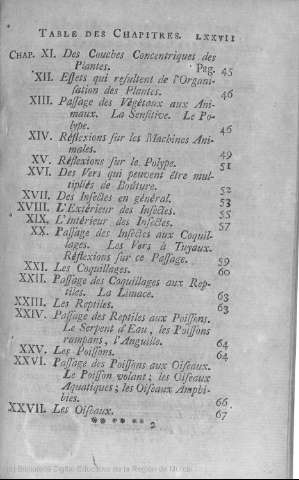 TABLE DES CHAPITRES. LXXVII
CHAP. XI. Des Couches Concentriques des
Plantes. Pag. 45
XII. Effets qui resultent de l'Organi-
sation des Plantes. 46
XIII. Passage des Végétaux aux Ani-
maux. La Sensitive. Le Po-
lype. 46
XIV. Réflexions sur les Machines Ani-
males. 49
XV. Réflexions sur le Polype. 51
XVI. Des Vers qui peuvent être mul-
tipliés de Bouture. 52
XVII. Des Insectes en général. 53
XVIII. L'Extérieur des Insectes. 55
XIX. L'Intérieur des Insectes. 57
XX. Passage des Insectes aux Coquil-
lages. Les Vers à Tuyaux.
Réflexions sur ce Passage. 59
XXI. Les Coquillages. 60
XXII. Passage des Coquillages aux Rep-
tiles. La Limace. 63
XXIII. Les Reptiles. 63
XXIV. Passage des Reptiles aux Poissons.
Le Serpent d'Eau, les Poissons
rampans, l'Anguille. 64
XXV. Les Poissons. 64
XXVI. Passage des Poissons aux Oiseaux.
Le Poisson volant; les Oiseaux
Aquatiques; les Oiseaux Amphi-
bies. 66
XXVII. Les Oiseaux. 67
***** 2
(c) Biblioteca Digital Educativa de la Región de Murcia